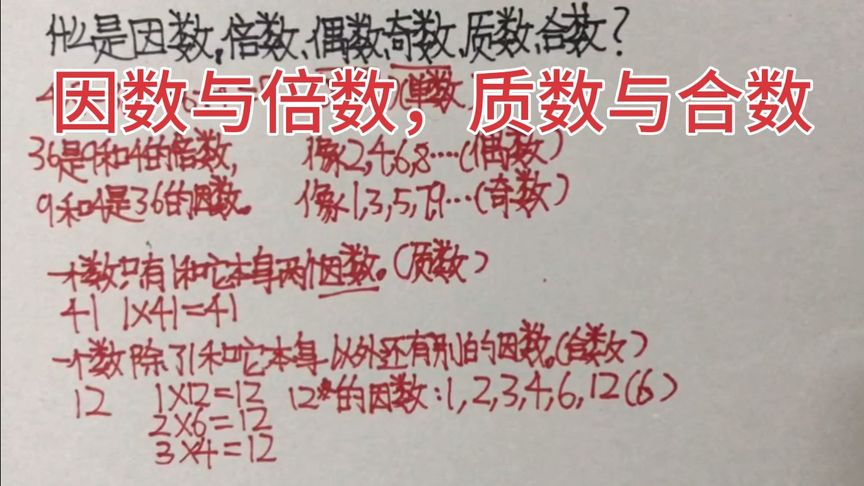 什么是因数,倍数、偶数,奇数、质数、合数?
因数与倍数，质数与合数
(单数
36是9和4的倍数,
像2,4,6,8……(偶数)
9和4是36的因数。
像1,3,5,7,9…(奇数)
一个数只有1和它本身两个因数。(质数)
41 1×41=41
一个数除了1和它本身以外还有别的因数。(合数)
12 1×12=12 12的因数:1,2,3,4,6,12(6)
2×6=12
3×4=12